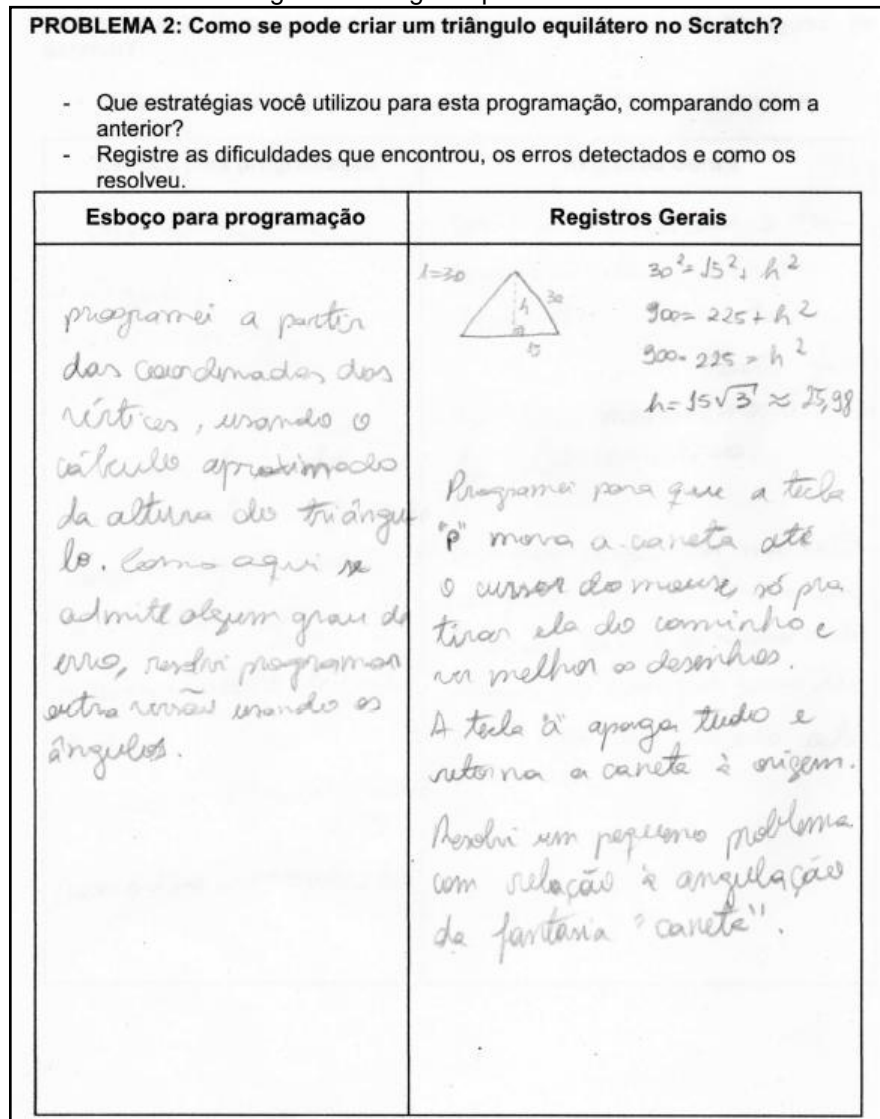 PROBLEMA 2: Como se pode criar um triângulo equilátero no Scratch?
- Que estratégias você utilizou para esta programação, comparando com a
anterior?
- Registre as dificuldades que encontrou, os erros detectados e como os
resolveu.
Esboço para programação
programei a partir
das coordenadas dos
vértices, usando o
cálculo aproximado
da altura do triângu
lo. Como aqui se
admite algum grau de
erro, resolvi programar
outra versão usando os
ângulos.
Registros Gerais
l=30
h
30
15
30² = 15² + h²
900 = 225 + h²
900 - 225 = h²
h = 15√3 ≈ 25,98
Programei para que a tecla
"p" mova a caneta até
o cursor do mouse, só pra
tirar ela do caminho e
ver melhor os desenhos.
A tecla "a" apaga tudo e
retorna a caneta à origem.
Resolvi um pequeno problema
com relação à angulação
da fantasia "caneta".